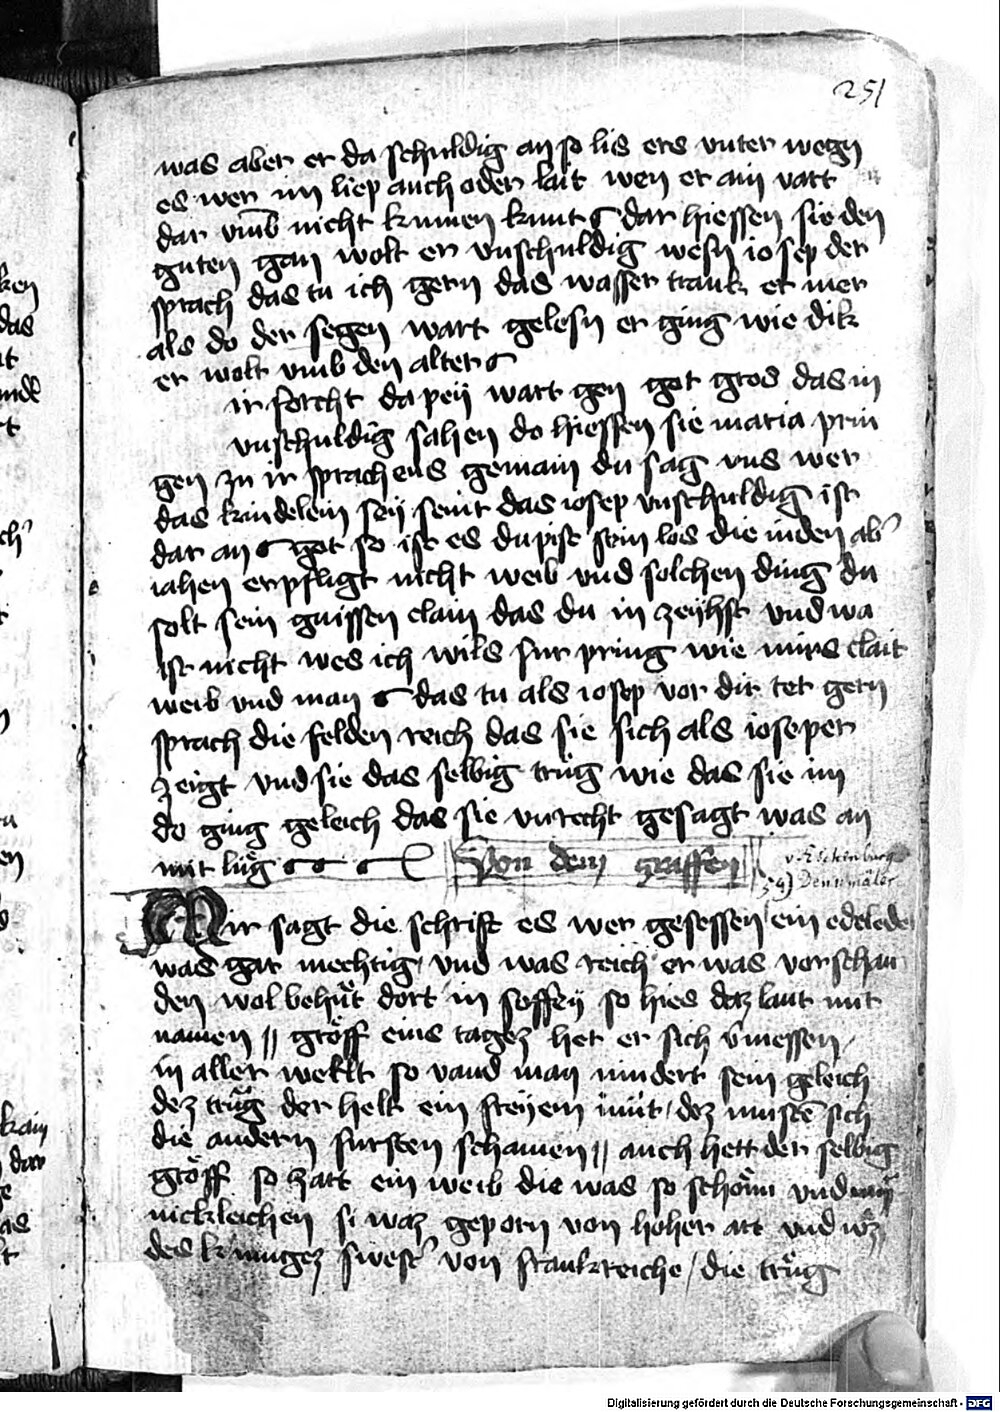 251
was aber er da schuldig an so lis ers vnter wegn
es wer im liep auch oder lait wen er ain vart
dar vmb nicht kumen kunt dar hiessen sie den
guten gan wolt er vnschuldig wesn iosep der
sprach das tu ich gern das wasser trank er mer
als do der segen wart gelesn er ging wie dik
er wolt vmb den alter
ir forcht da peÿ wart gen got gros das in
vnschuldig sahen do hiessen sie maria prin
gen zu ir sprachens gemain du sag vns wer
das kindelein seÿ seint das iosep vnschuldig ist
dar an got so ist es du pist sein los die iuden ab
iahen er pfligt nicht weib vnd solchen ding du
solt sein guissen clain das du in zeÿhst vnd wa
ist nicht wes ich wils fur pring wie mirs clait
weib vnd man das tu als iosep vor dir tet gern
sprach die selden reich das sie sich als iosep er
zeigt vnd sie das selbig trug wie das sie im
do ging geleich das sie vnrecht gesagt was an
mit lüg
Von dem graffen
v. Eschinburg
Denkmäler
Mir sagt die schrift es wer gesessen ein edele
was gar mechtig vnd was reich er was vor schan
den wol behüt dort in soffeÿ so hies daz lant mit
namen gröff eins tagez het er sich vmessen
in aller weklt so vand man nindert sein geleich
dez trüg der helt ein freÿem müt dez mustē sich
die andern fursten schamen auch hett der selbig
gröff so zart ein weib die was so schön vnd
nickleichen si waz geporn von hoher art vnd wz
des kuniges swest von frankreiche die trüg
Digitalisierung gefördert durch die Deutsche Forschungsgemeinschaft - DFG